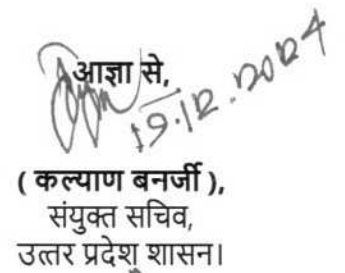 आज्ञा से,
19.12.2024
( कल्याण बनर्जी ),
संयुक्त सचिव,
उत्तर प्रदेश शासन।